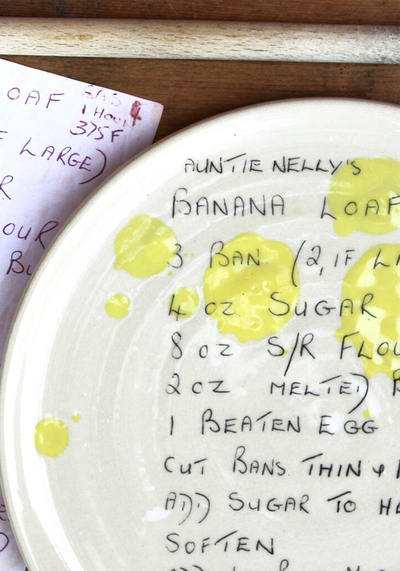 OAF
GAS 4
1 HOUR
375F
LARGE)
R
OUR
BU
AUNTIE NELLY'S
BANANA LOAF
3 BAN (2, IF L
4 OZ SUGAR
8 OZ S/R FLOU
2 OZ MELTED B
1 BEATEN EGG
CUT BANS. THIN &
ADD SUGAR TO
SOFTEN